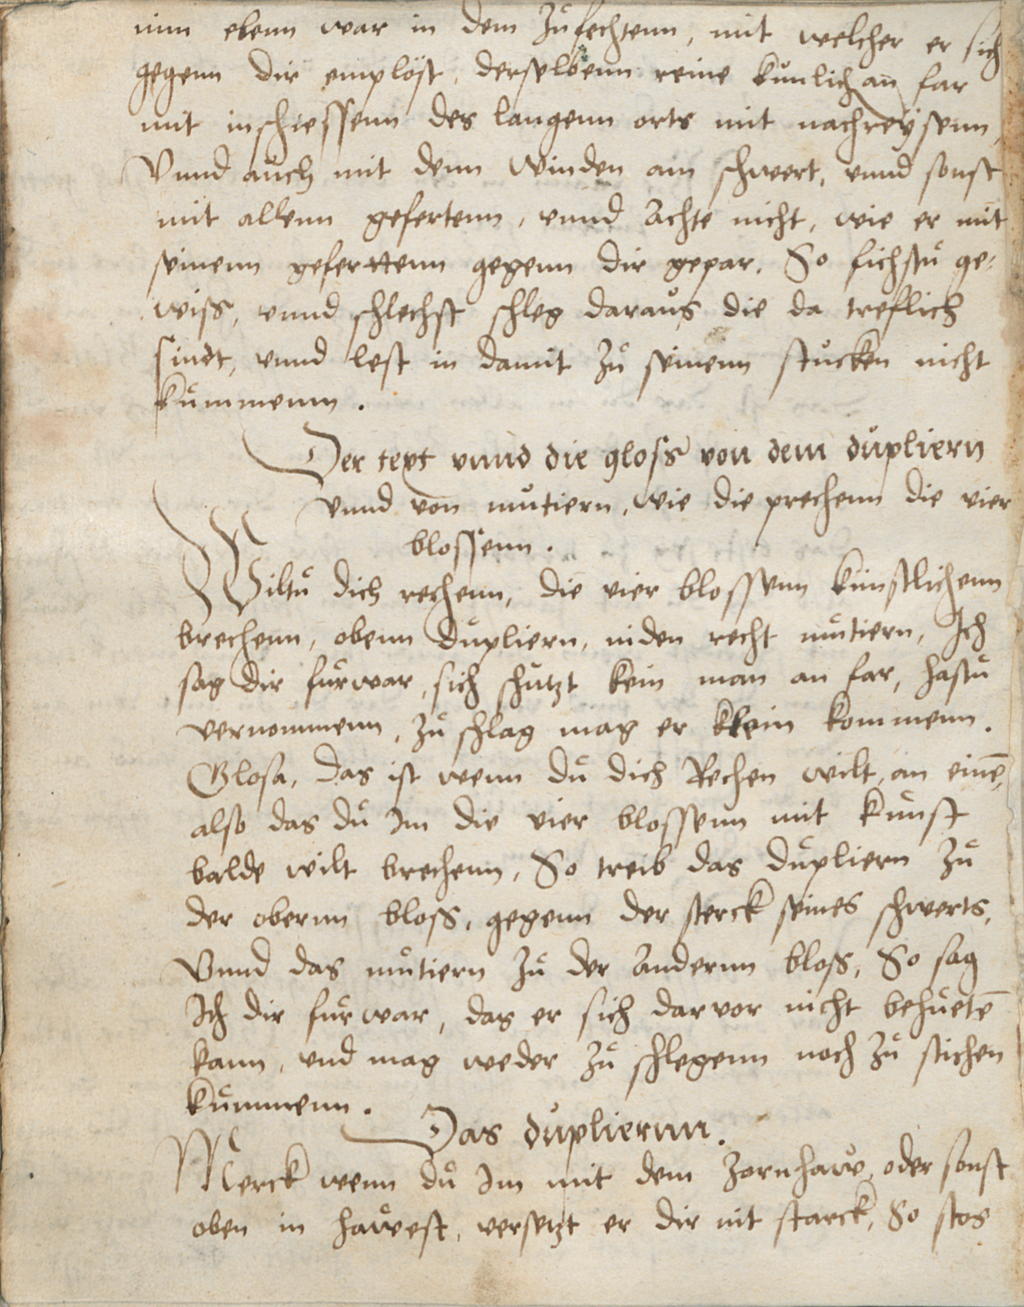 nim ebenn war in dem zůfechtenn, mit welcher er sich
gegenn dir emplöst, derselbenn reme kůnlich an far
mit inschiessenn des langenn orts mit nachreÿsenn,
Vnnd aůch mit denn Winden am schwert, vnnd sonst
mit allenn gefertenn, vnnd Achte nicht, wie er mit
seinenn geferttenn gegenn dir gepar. So fichstů ge„
wiss, vnnd schlechst schleg daraůs die da treflich
sindt, vnnd lest in damit zů seinenn stůcken nicht
kůmmenn.
Der text vnnd die gloss von dem důpliern
vnnd von můtiern, wie die prechenn die vier
blossenn.
Wiltů dich rechenn, die vier blossenn kůnstlichenn
brechenn, obenn důpliern, niden recht můtiern, Ich
sag dir fůrwar, sich schůtzt kein man an far, hastů
vernommenn, zů schlag mag er klein kommenn.
Glosa, das ist wenn dů dich Rechen wilt, an einē,
also das dů Im die vier blossenn mit kůnst
balde wilt brechenn, So treib das důpliern zů
der obernn bloss, gegenn der sterck seines schwerts,
Vnnd das můtiern zů der Andernn bloss, So sag
Ich dir fůrwar, das er sich darvor nicht behůetē
kann, vnd mag weder zů schlegenn noch zů stichen
kůmmenn.
Das důpliernn.
Merck wenn dů Im mit dem zornhaw, oder sonst
oben in haẘest, versetzt er dir mit starck, So stos